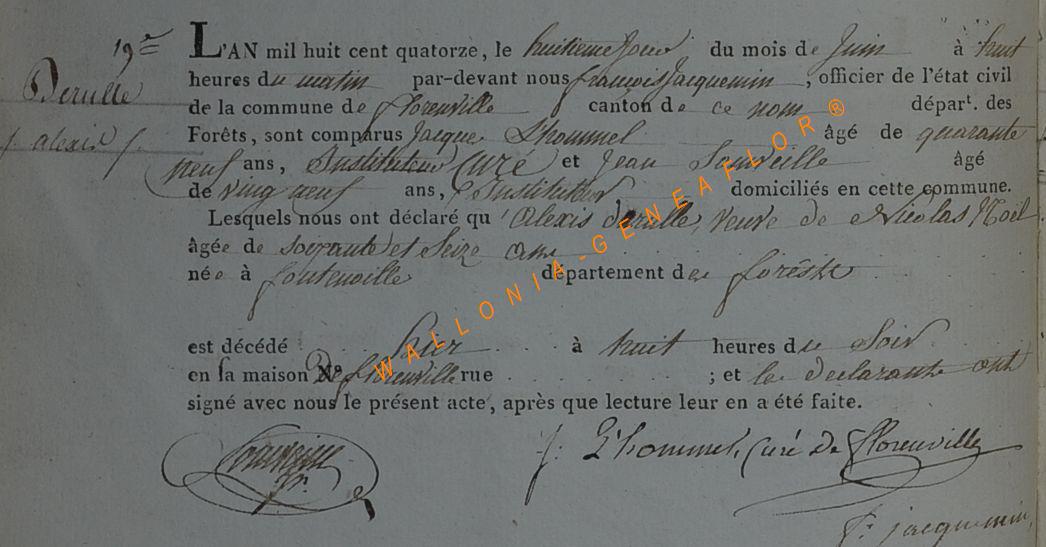 19e
Derulle
alexis
L'AN mil huit cent quatorze, le huitieme jour du mois de Juin à huit
heures du matin par-devant nous françois Jacquemin, officier de l'état civil
de la commune de florenville canton de ce nom départ. des
Forêts, sont comparus Jacque L'hommel âgé de quarante
neuf ans, Instituteur Curé et Jean Souveille âgé
de vingt neuf ans, Instituteur domiciliés en cette commune.
Lesquels nous ont déclaré qu'Alexis derulle, veuve de Nicolas Noël
âgée de soixante et Seize ans
née à fontenoille département des forêsts
est décédé hier à huit heures du Soir
en sa maison No. De florenville rue ; et les declarants ont
signé avec nous le présent acte, après que lecture leur en a été faite.
J. L'hommel, Curé de florenville
f. jacquemin
WALLONIA-GENEAFLOR®